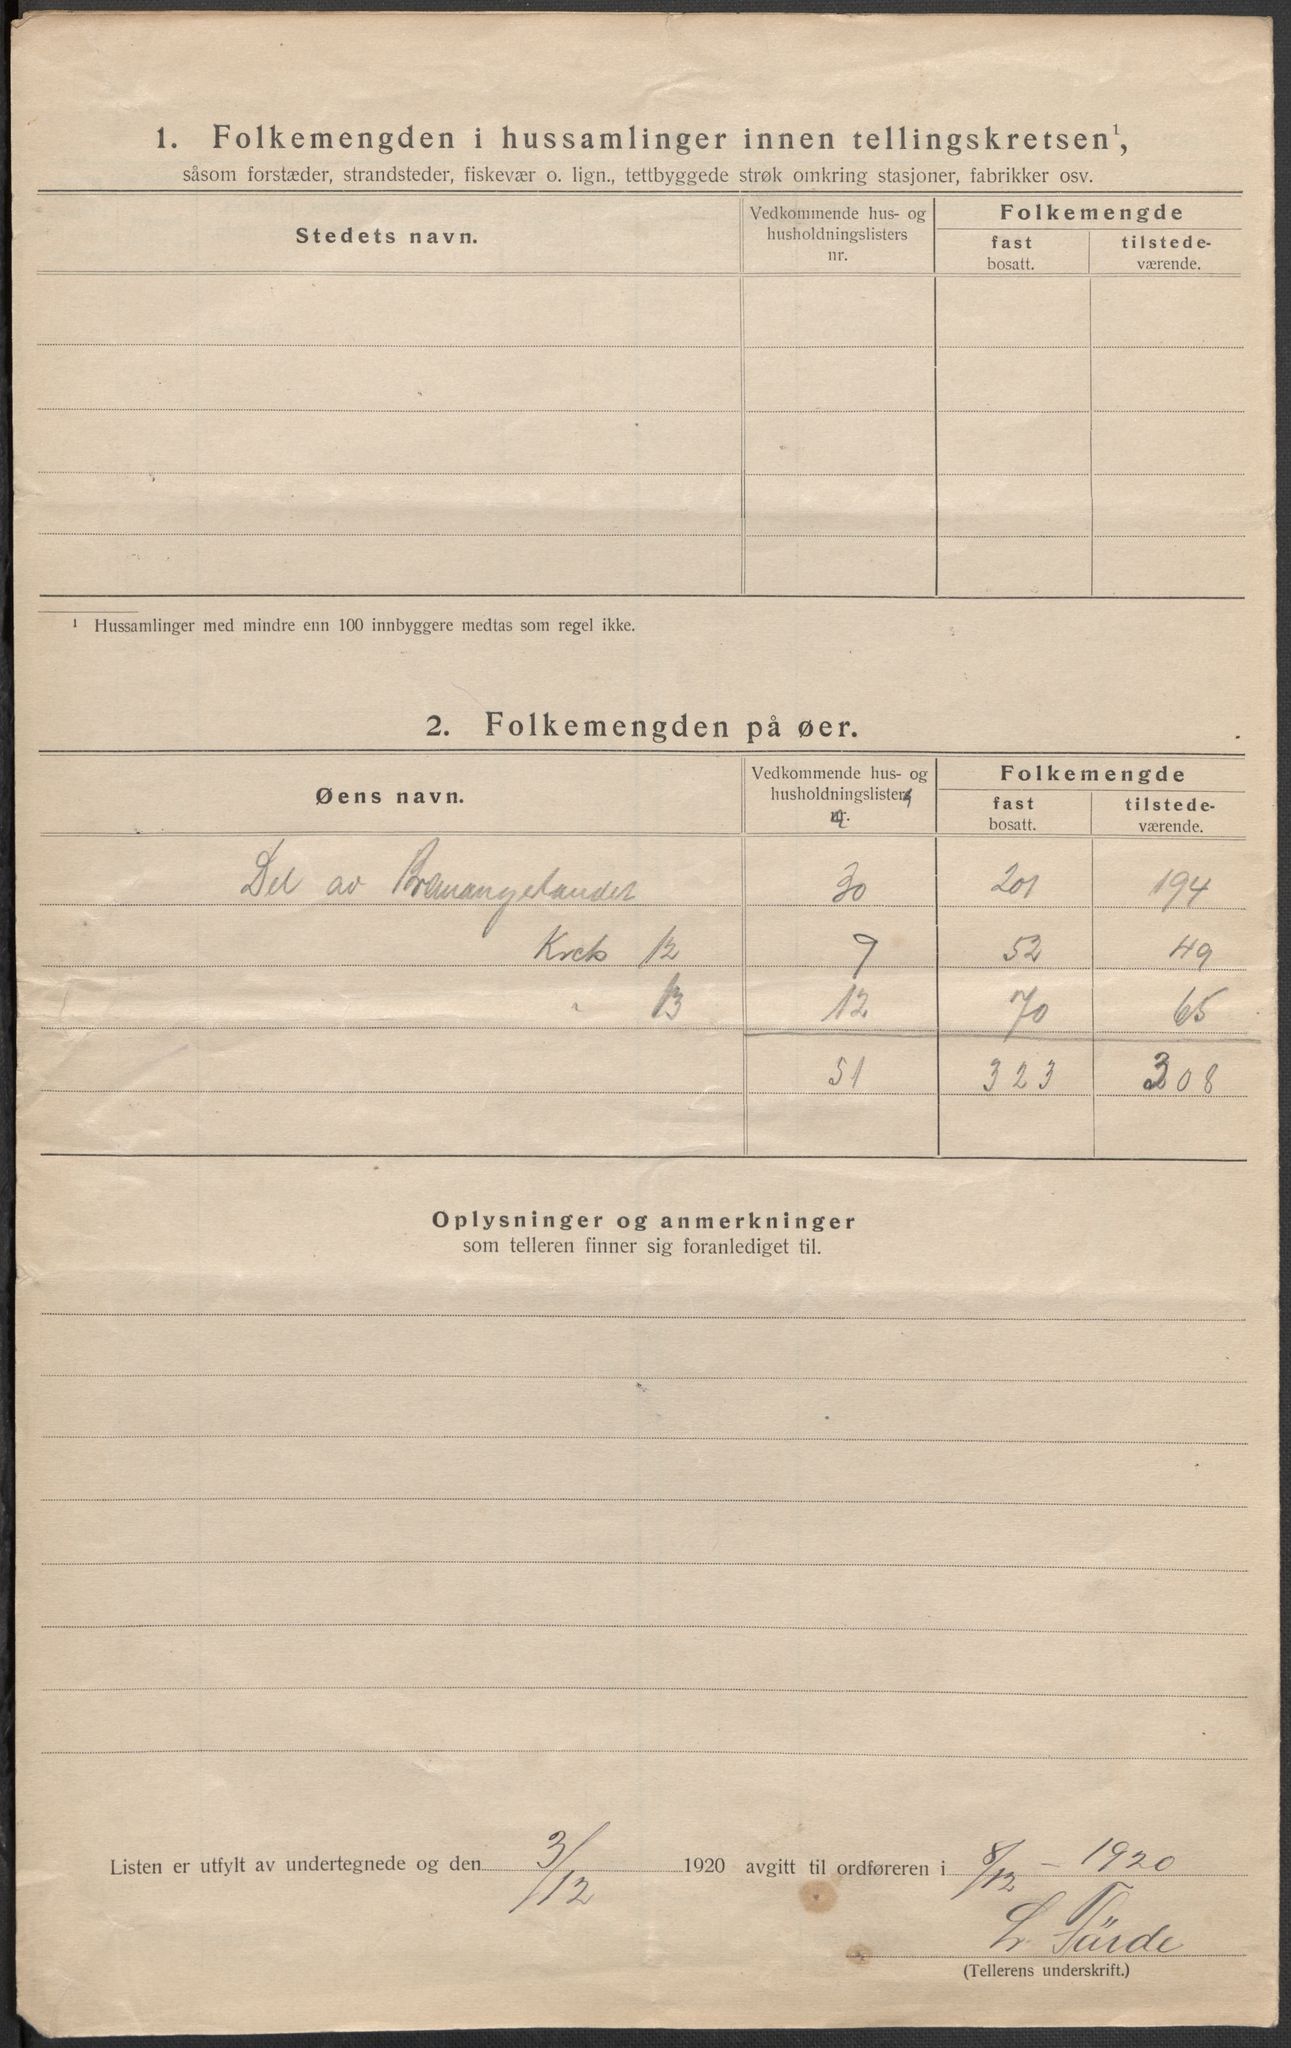 1. Folkemengden i hussamlinger innen tellingskretsen¹,
såsom forstæder, strandsteder, fiskevær o. lign., tettbyggede strøk omkring stasjoner, fabrikker osv.
Stedets navn.
Vedkommende hus- og
husholdningslisters
nr.
Folkemengde
fast
bosatt.
tilstede-
værende.
¹ Hussamlinger med mindre enn 100 innbyggere medtas som regel ikke.
2. Folkemengden på øer.
Øens navn.
Vedkommende hus- og
husholdningslisters
nr.
Folkemengde
fast
bosatt.
tilstede-
værende.
Del av Bremangerlandet 30 201 194
Krets 12 9 52 49
" 13 12 70 65
51 323 308
Oplysninger og anmerkninger
som telleren finner sig foranlediget til.
Listen er utfylt av undertegnede og den 3/12 1920 avgitt til ordføreren i 8/12 – 1920
(Tellerens underskrift.)